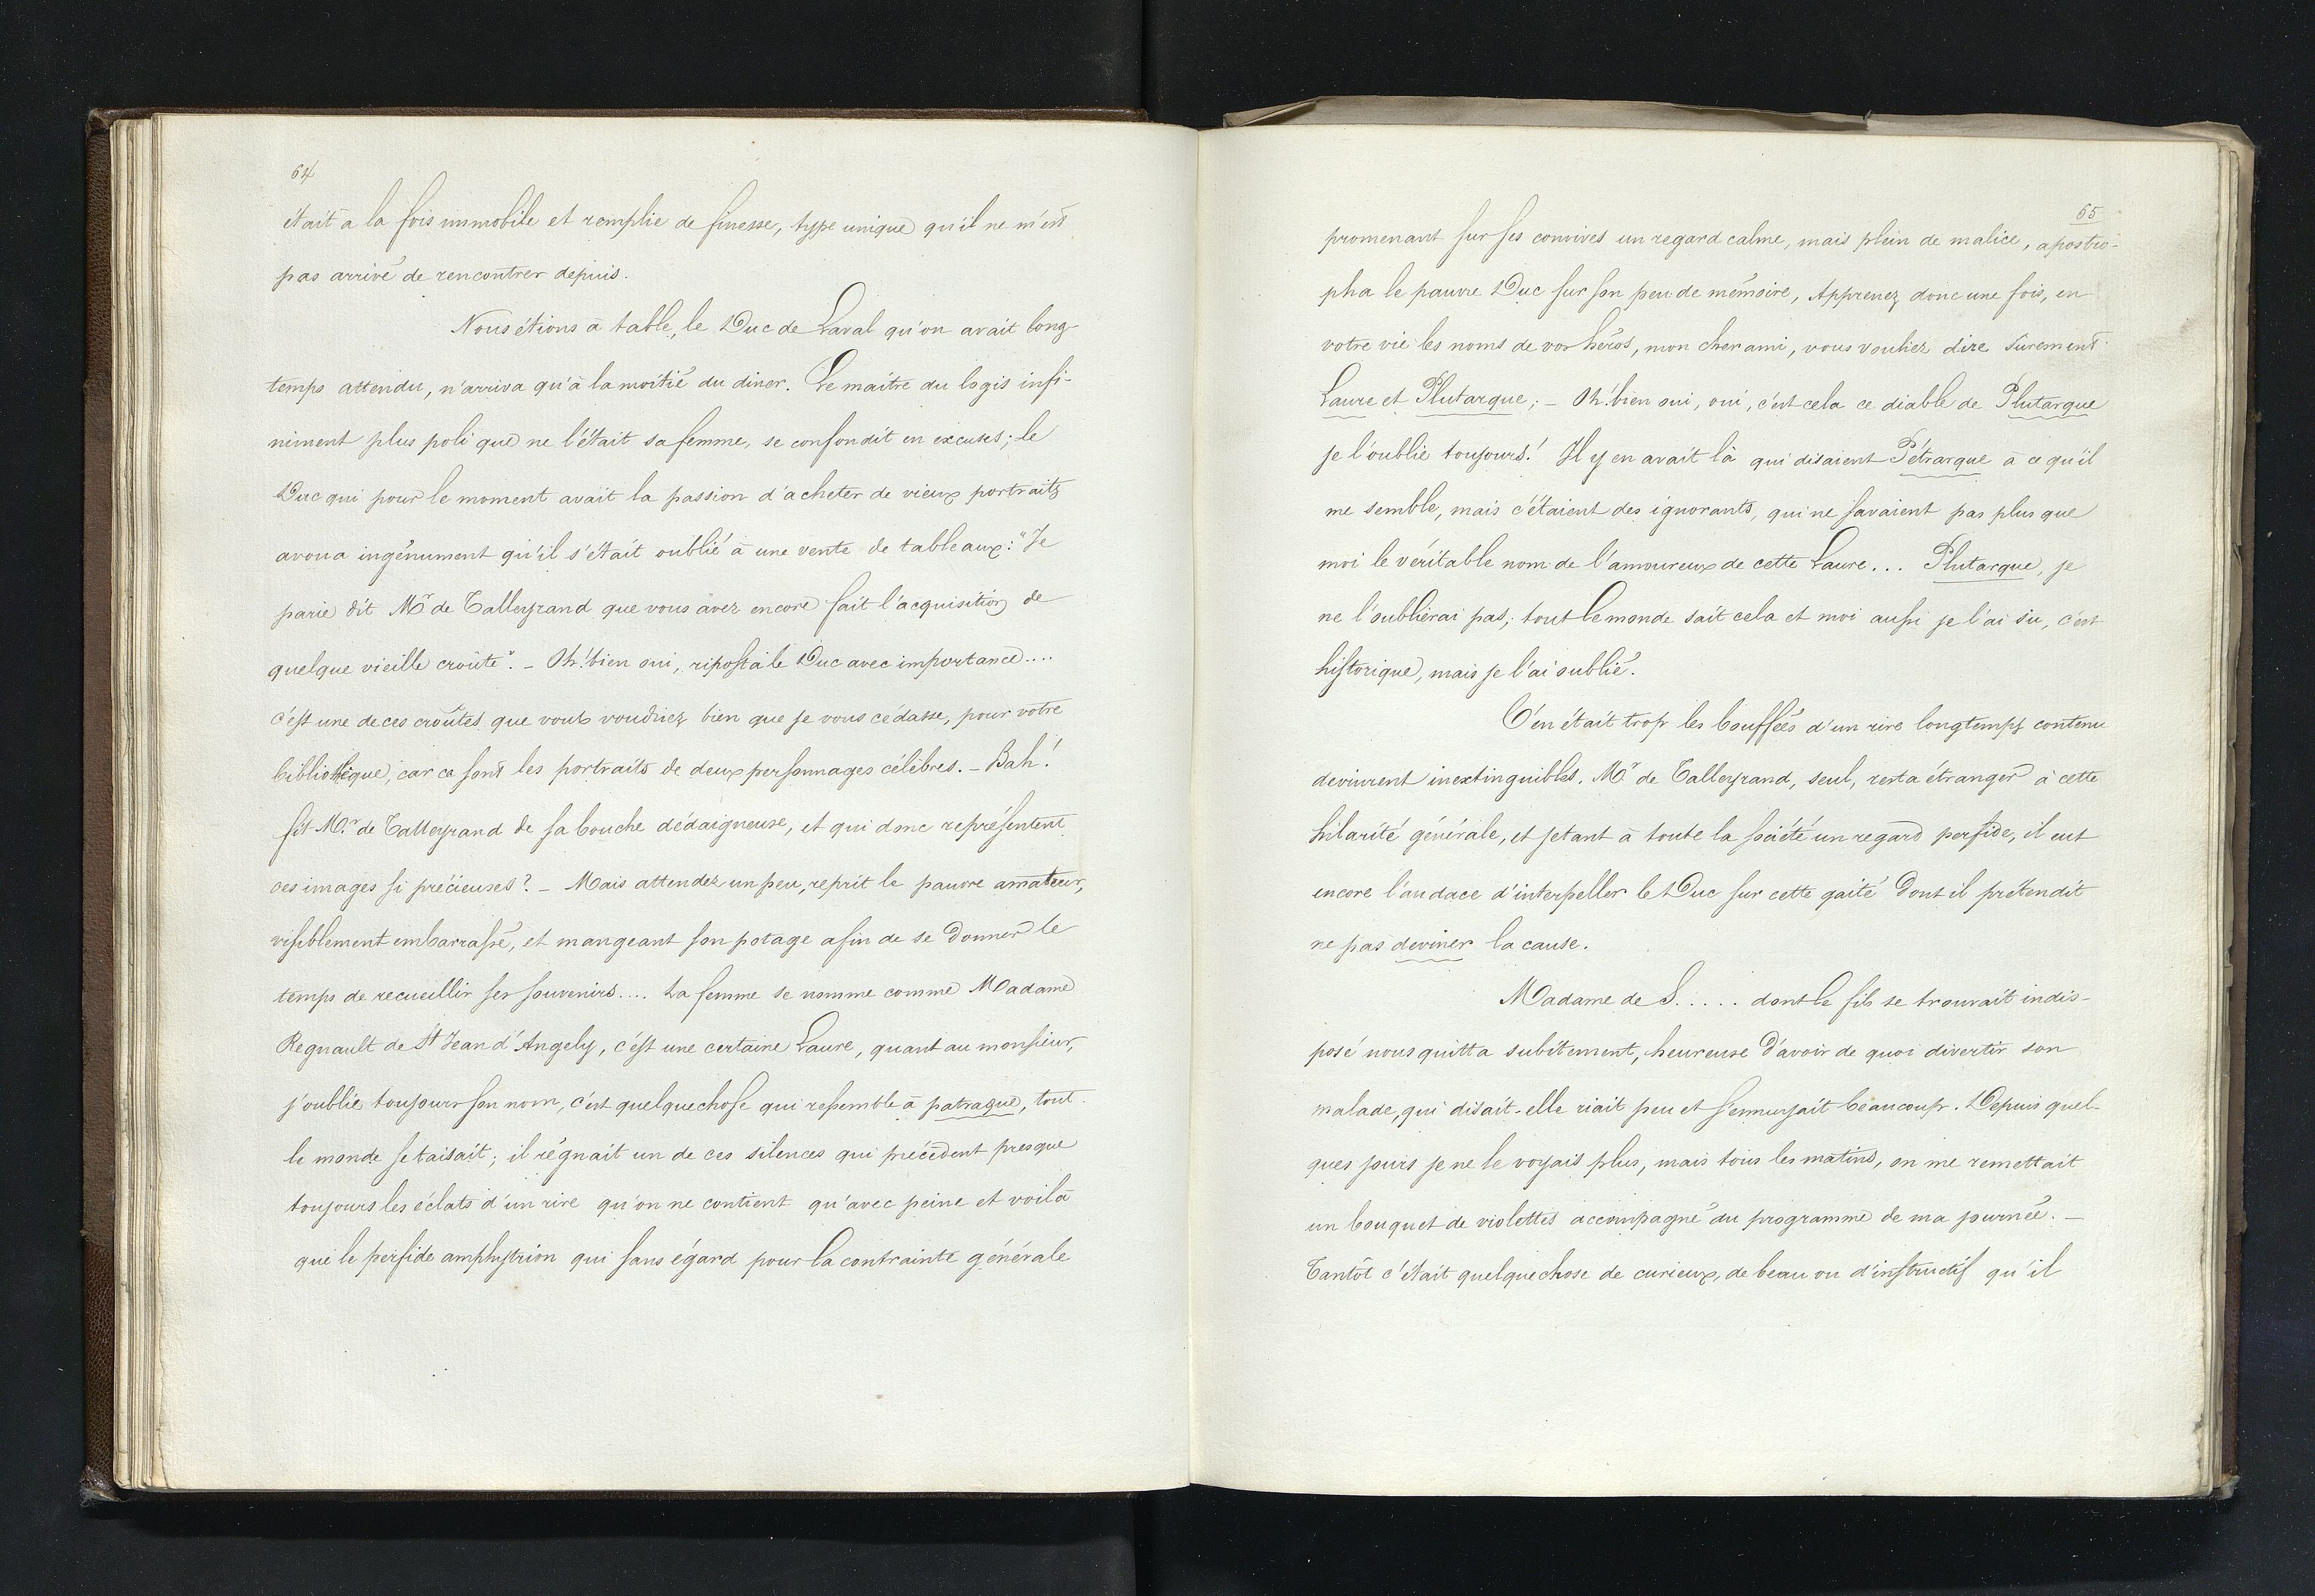 64
était à la fois immobile et remplie de finesse, type unique qu'il ne m'est
pas arrivé de rencontrer depuis.
Nous étions à table, le Duc de Laval qu'on avait long-
temps attendu, n'arriva qu'à la moitié du diner. Le maître du logis infi-
niment plus poli que ne l'était sa femme, se confondit en excuses; le
Duc qui pour le moment avait la passion d'acheter de vieux portraits
avoua ingénument qu'il s'était oublié à une vente de tableaux: "Je
parie dit Mr de Talleyrand que vous avez encore fait l'acquisition de
quelque vieille croûte". - Oh! bien oui, riposta le Duc avec importance....
c'est une de ces croûtes que vous voudriez bien que je vous cédasse, pour votre
bibliothèque, car ce sont les portraits de deux personnages célèbres. - Bah!
fit Mr. de Talleyrand de sa bouche dédaigneuse, et qui donc représentent
ces images si précieuses? - Mais attendez un peu, reprit le pauvre amateur,
visiblement embarrassé, et mangeant son potage afin de se donner le
temps de recueillir ses souvenirs.... La femme se nomme comme Madame
Regnault de St Jean d'Angely, c'est une certaine Laure, quant au monsieur,
j'oublie toujours son nom, c'est quelque chose qui ressemble à patraque, tout
le monde se taisait; il régnait un de ces silences qui précèdent presque
toujours les éclats d'un rire qu'on ne contient qu'avec peine et voilà
que le perfide amphytrion qui sans égard pour la contrainte générale
65
promenant sur ses convives un regard calme, mais plein de malice, apostro-
pha le pauvre Duc sur son peu de mémoire, Apprenez donc une fois, en
votre vie les noms de vos héros, mon cher ami, vous vouliez dire surement
Laure et Plutarque; - Oh! bien oui, oui, c'est cela ce diable de Plutarque
je l'oublie toujours! Il y en avait là qui disaient Pétrarque à ce qu'il
me semble, mais c'étaient des ignorants, qui ne savaient pas plus que
moi le véritable nom de l'amoureux de cette Laure... Plutarque, je
ne l'oublierai pas; tout le monde sait cela et moi aussi je l'ai su, c'est
historique, mais je l'ai oublié.
C'en était trop les bouffées d'un rire longtemps contenu
devinrent inextinguibles. Mr de Talleyrand, seul, resta étranger à cette
hilarité générale, et jetant à toute la société un regard perfide, il eut
encore l'audace d'interpeller le Duc sur cette gaité dont il prétendit
ne pas deviner la cause.
Madame de S..... dont le fils se trouvait indis-
posé nous quitta subitement, heureuse d'avoir de quoi divertir son
malade, qui disait-elle riait peu et s'ennuyait beaucoup. Depuis quel-
ques jours je ne le voyais plus, mais tous les matins, on me remettait
un bouquet de violettes accompagné du programme de ma journée. -
Tantôt c'était quelque chose de curieux, de beau ou d'instructif qu'il